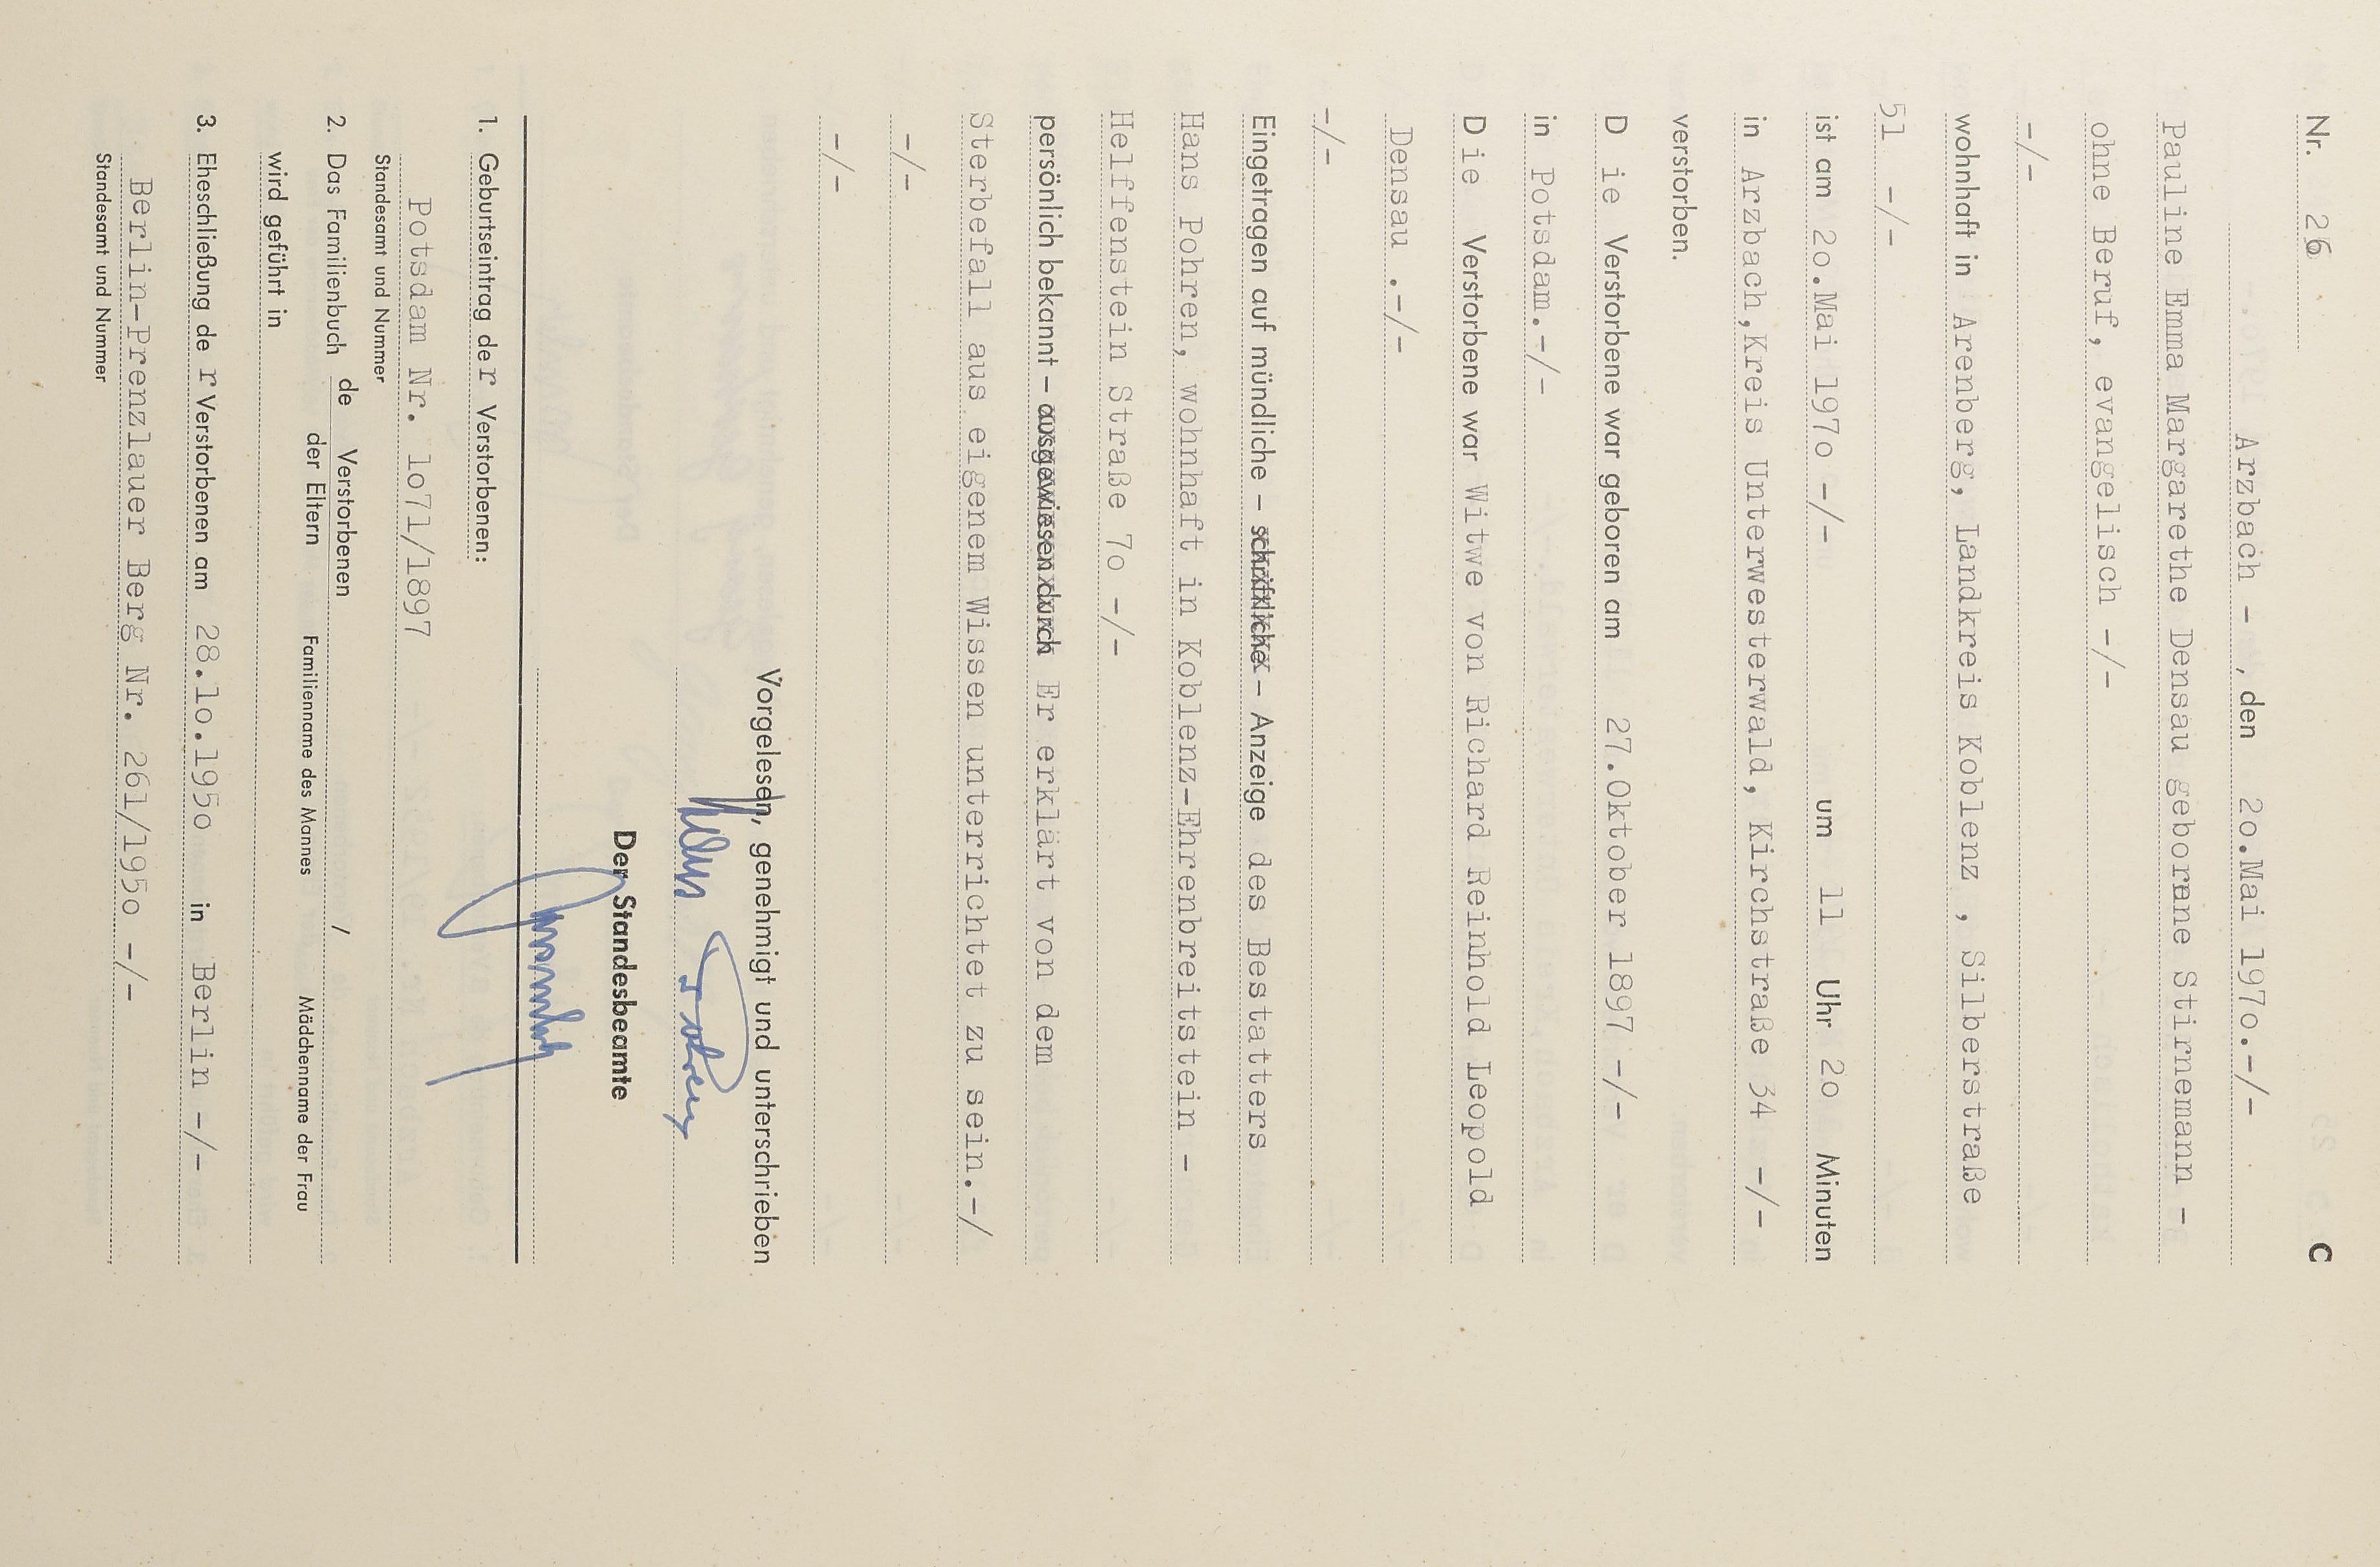 Nr. 26 C
Arzbach - , den 2o.Mai 197o.-/-
Pauline Emma Margarethe Densau geborene Stirnemann -
ohne Beruf, evangelisch -/-
-/-
wohnhaft in Arenberg, Landkreis Koblenz , Silberstraße
51 -/-
ist am 2o.Mai 197o -/- um 11 Uhr 2o Minuten
in Arzbach,Kreis Unterwesterwald, Kirchstraße 34 -/-
verstorben.
D ie Verstorbene war geboren am 27.Oktober 1897 -/-
in Potsdam.-/-
D ie Verstorbene war Witwe von Richard Reinhold Leopold
Densau .-/-
-/-
Eingetragen auf mündliche – schriftliche – Anzeige des Bestatters
Hans Pohren, wohnhaft in Koblenz-Ehrenbreitstein -
Helffenstein Straße 7o -/-
persönlich bekannt – ausgewiesen durch Er erklärt von dem
Sterbefall aus eigenem Wissen unterrichtet zu sein.-/
-/-
-/-
Vorgelesen, genehmigt und unterschrieben
Hans Pohren
Der Standesbeamte
1. Geburtseintrag de r Verstorbenen:
Potsdam Nr. 1o71/1897
Standesamt und Nummer
2. Das Familienbuch de Verstorbenen /
der Eltern Familienname des Mannes Mädchenname der Frau
wird geführt in
3. Eheschließung de r Verstorbenen am 28.1o.195o in Berlin -/-
Berlin-Prenzlauer Berg Nr. 261/195o -/-
Standesamt und Nummer